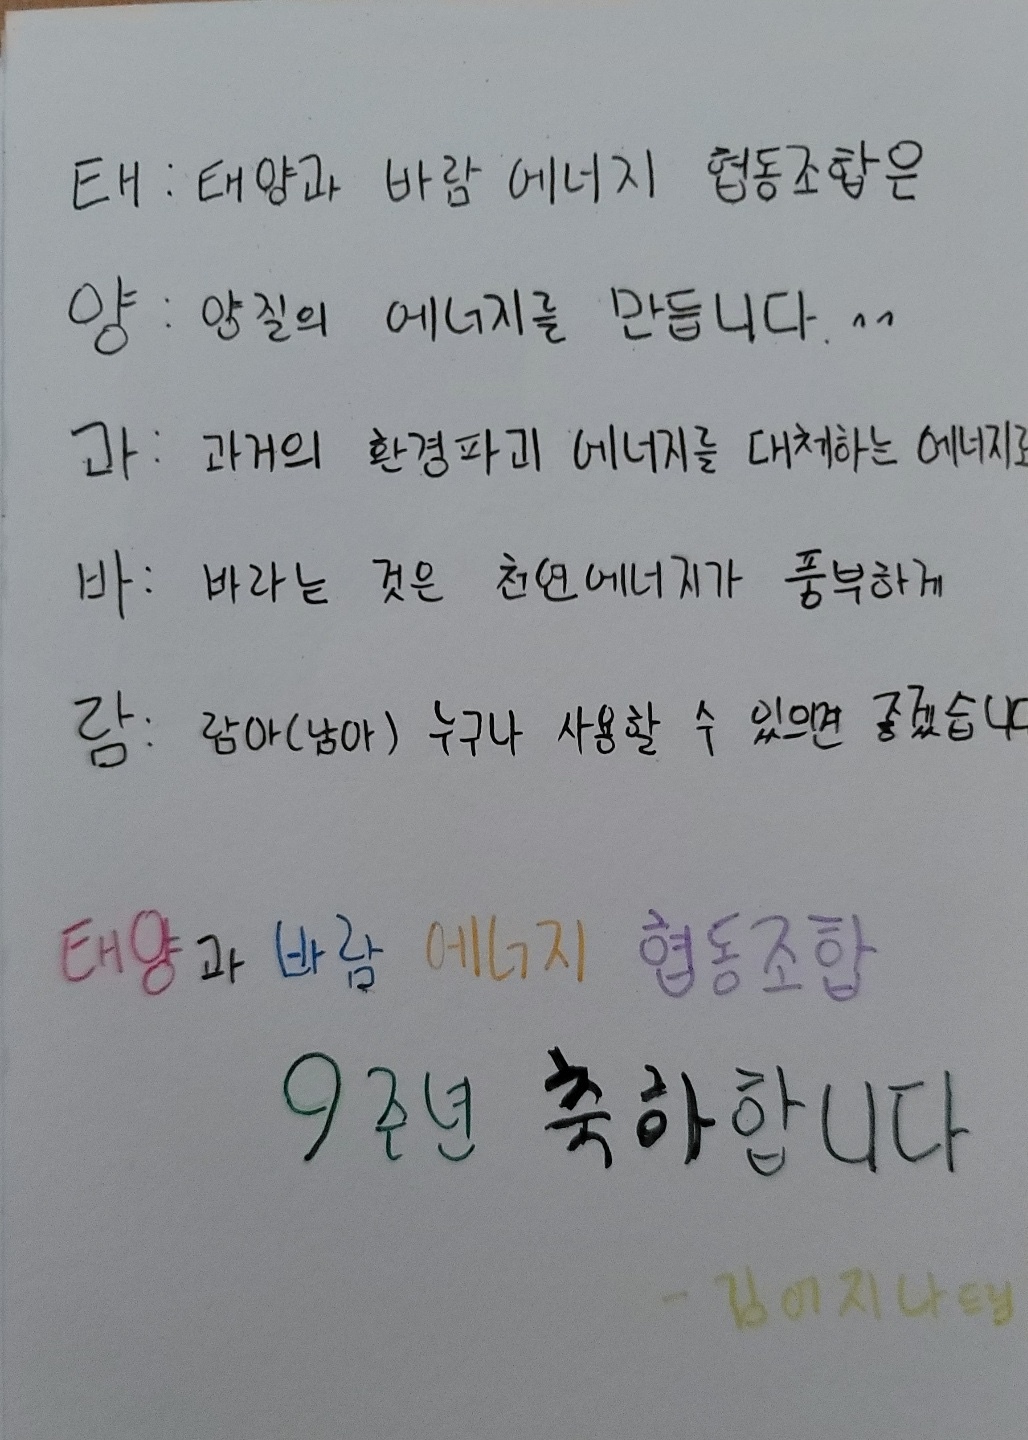 태 : 태양과 바람 에너지 협동조합은
양 : 양질의 에너지를 만듭니다. ^^
과 : 과거의 환경파괴 에너지를 대체하는 에너지로
바 : 바라는 것은 천연에너지가 풍부하게
람 : 람아(남아) 누구나 사용할 수 있으면 좋겠습니다
태양과 바람 에너지 협동조합
9주년 축하합니다
- 김어지나드림